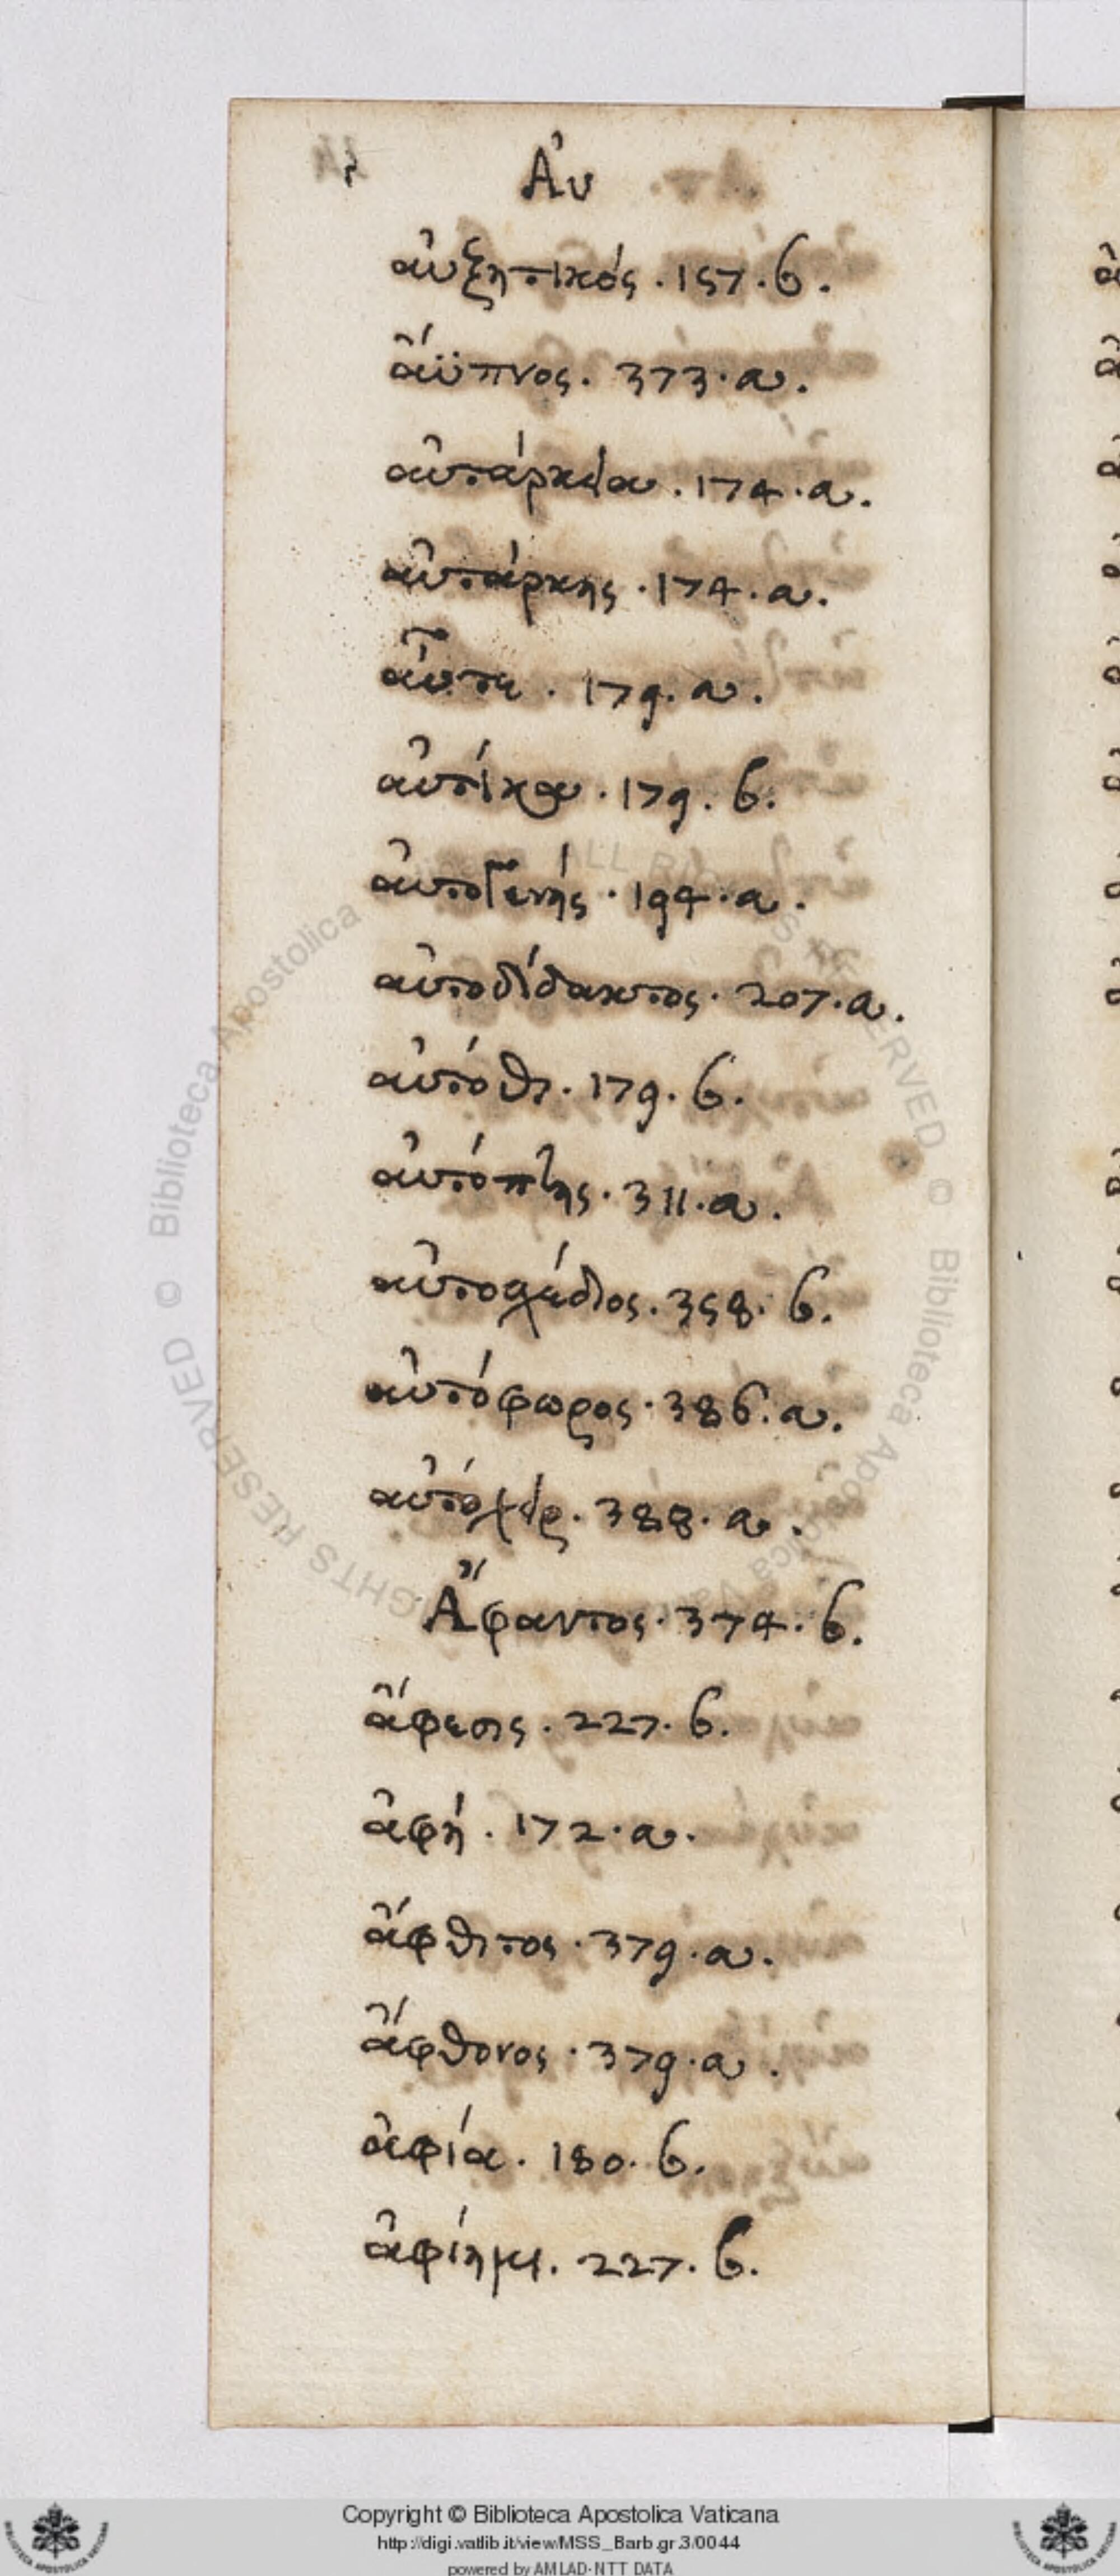 Αὐ
αὐξητικός . 157 . b .
ἄϋπνος . 373 . a .
αὐτάρκεια . 174 . a .
αὐτάρκης . 174 . a .
αὖτε . 179 . a .
αὐτίκα . 179 . b .
αὐτογενής . 194 . a .
αὐτοδίδακτος . 207 . a .
αὐτόθι . 179 . b .
αὐτόπτης . 311 . a .
αὐτοσχέδιος . 358 . b .
αὐτόφωρος . 386 . a .
αὐτόχειρ . 388 . a .
Ἄφαντος . 374 . b .
ἄφεσις . 227 . b .
ἀφή . 172 . a .
ἄφθιτος . 379 . a .
ἄφθονος . 379 . a .
ἀφία . 180 . b .
ἀφίημι . 227 . b .
© Biblioteca Apostolica Vaticana ALL RIGHTS RESERVED
Copyright © Biblioteca Apostolica Vaticana
http://digi.vatlib.it/view/MSS_Barb.gr.3/0044
powered by AMLAD-NTT DATA